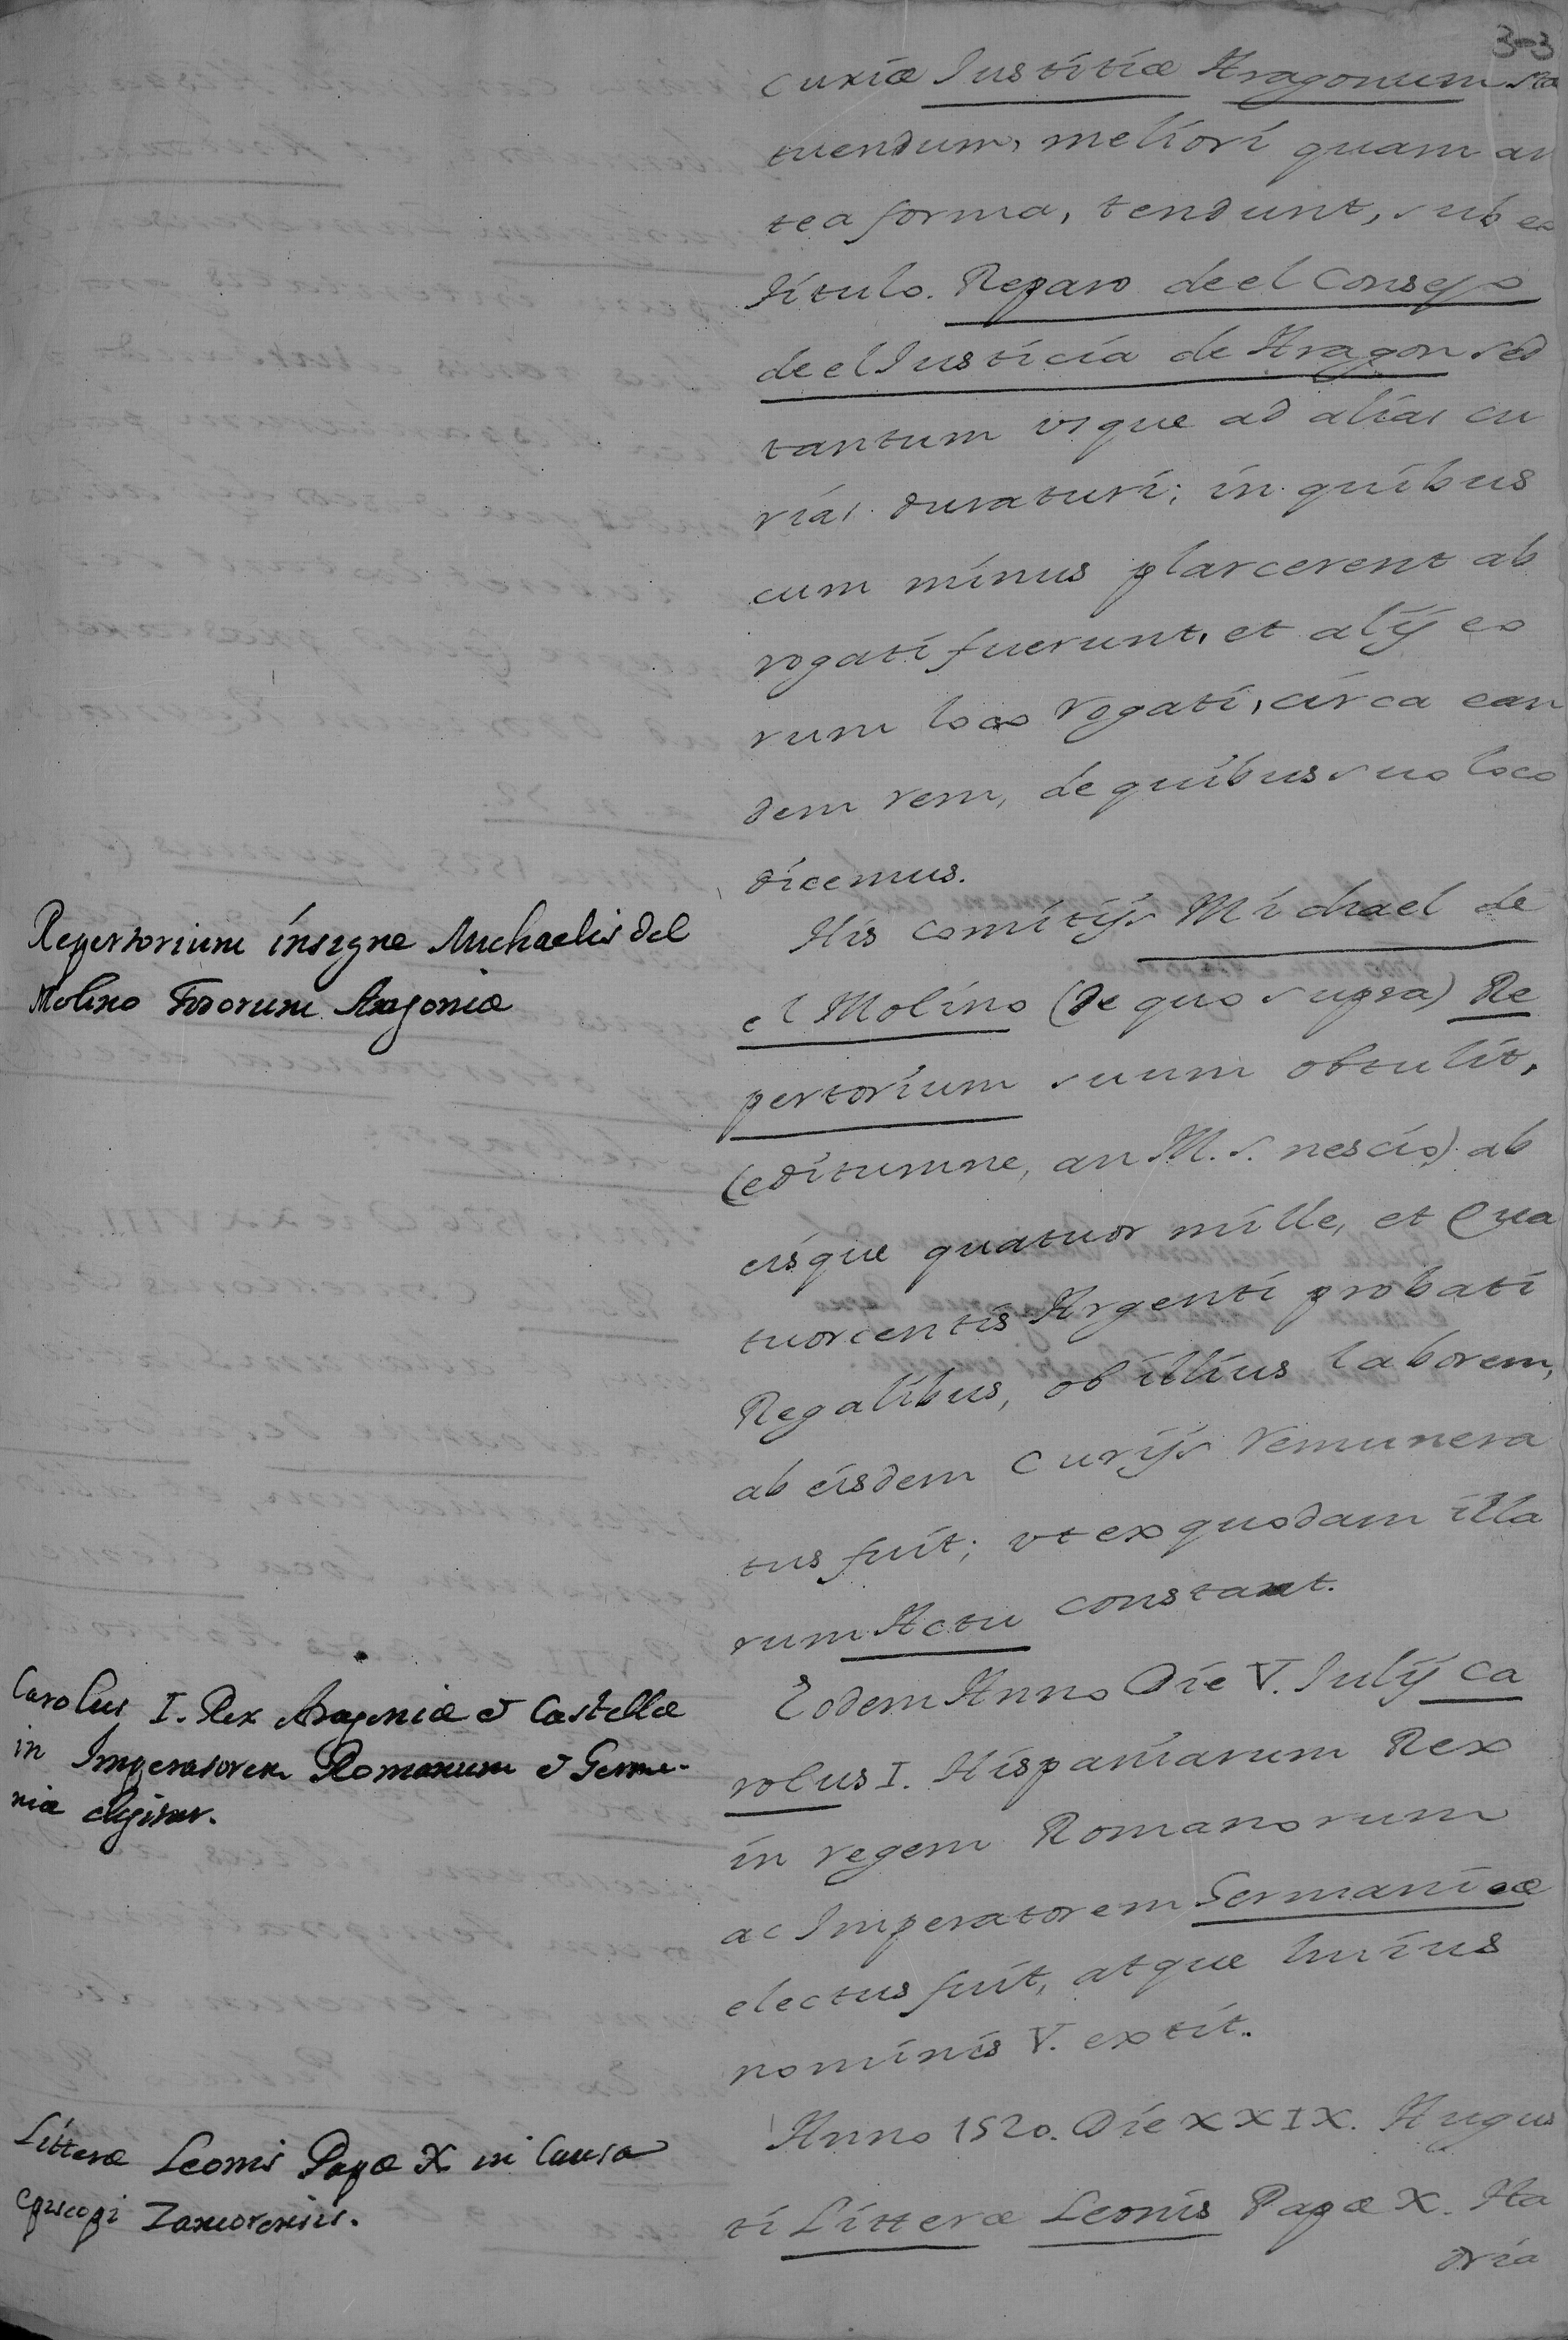 3-3
curiæ Iustitiæ Aragonum sta
tuendum, meliori quam an
tea forma, tendunt, sub eo
titulo. Reparo de el Consejo
de el Iusticia de Aragon sed
tantum vsque ad alias cu
rias duraturi; in quibus
cum minus plarcerent ab
rogati fuerunt, et alÿ eo
rum loco rogati, circa ean
dem rem, de quibus suo loco
dicemus.
Repertorium insigne Michaelis del
Molino Fororum Aragoniæ
His comitÿs Michael de
el Molino (de quo supra) Re
pertorium suum obtulit,
(editumne, an M. S. nescio) ab
eisque quatuor mille, et Qua
tuorcentis Argenti probati
Regalibus, ob illius laborem,
ab eisdem Curÿs remunera
tus fuit; vt ex quodam illa
rum Actu constat.
Carolus I. Rex Aragoniæ & Castellæ
in Imperatorem Romanum & Germa-
niæ eligitur.
Eodem Anno Die V. Iulÿ Ca
rolus I. Hispaniarum Rex
in regem Romanorum
ac Imperatorem Germaniæ
electus fuit, atque huius
nominis V. extit.
Litteræ Leonis Papæ X in Causa
Episcopi Zamorensis.
Anno 1520. Die XXIX. Augus
ti Litteræ Leonis Papæ X. Ha
dria